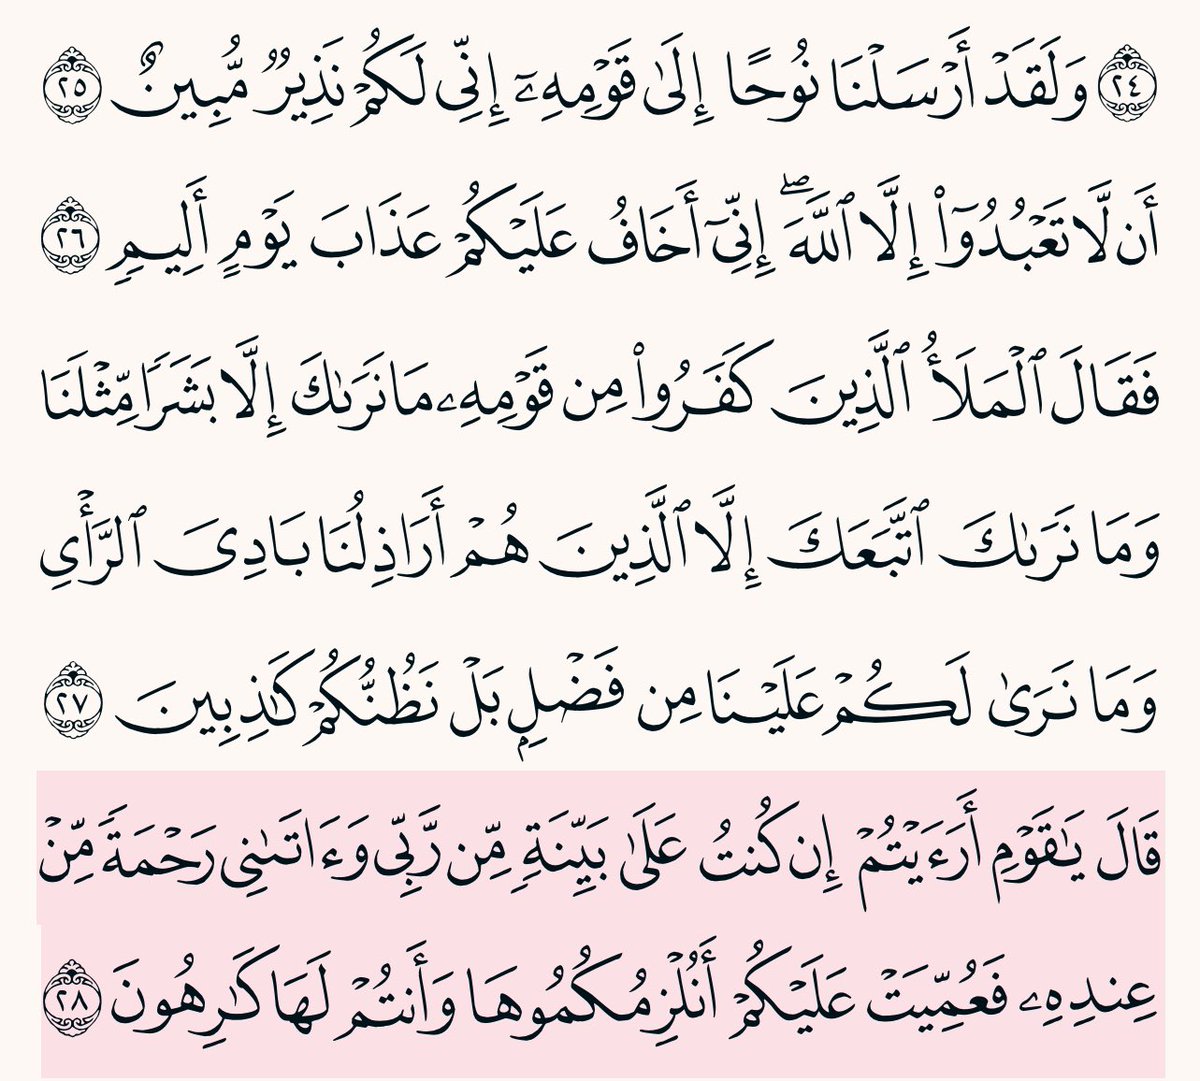 ٢٤ وَلَقَدْ أَرْسَلْنَا نُوحًا إِلَىٰ قَوْمِهِۦٓ إِنِّى لَكُمْ نَذِيرٌ مُّبِينٌ ٢٥
أَن لَّا تَعْبُدُوٓا۟ إِلَّا ٱللَّهَ ۖ إِنِّىٓ أَخَافُ عَلَيْكُمْ عَذَابَ يَوْمٍ أَلِيمٍ ٢٦
فَقَالَ ٱلْمَلَأُ ٱلَّذِينَ كَفَرُوا۟ مِن قَوْمِهِۦ مَا نَرَىٰكَ إِلَّا بَشَرًا مِّثْلَنَا
وَمَا نَرَىٰكَ ٱتَّبَعَكَ إِلَّا ٱلَّذِينَ هُمْ أَرَاذِلُنَا بَادِىَ ٱلرَّأْىِ
وَمَا نَرَىٰ لَكُمْ عَلَيْنَا مِن فَضْلٍۭ بَلْ نَظُنُّكُمْ كَـٰذِبِينَ ٢٧
قَالَ يَـٰقَوْمِ أَرَءَيْتُمْ إِن كُنتُ عَلَىٰ بَيِّنَةٍ مِّن رَّبِّى وَءَاتَىٰنِى رَحْمَةً مِّنْ
عِندِهِۦ فَعُمِّيَتْ عَلَيْكُمْ أَنُلْزِمُكُمُوهَا وَأَنتُمْ لَهَا كَـٰرِهُونَ ٢٨